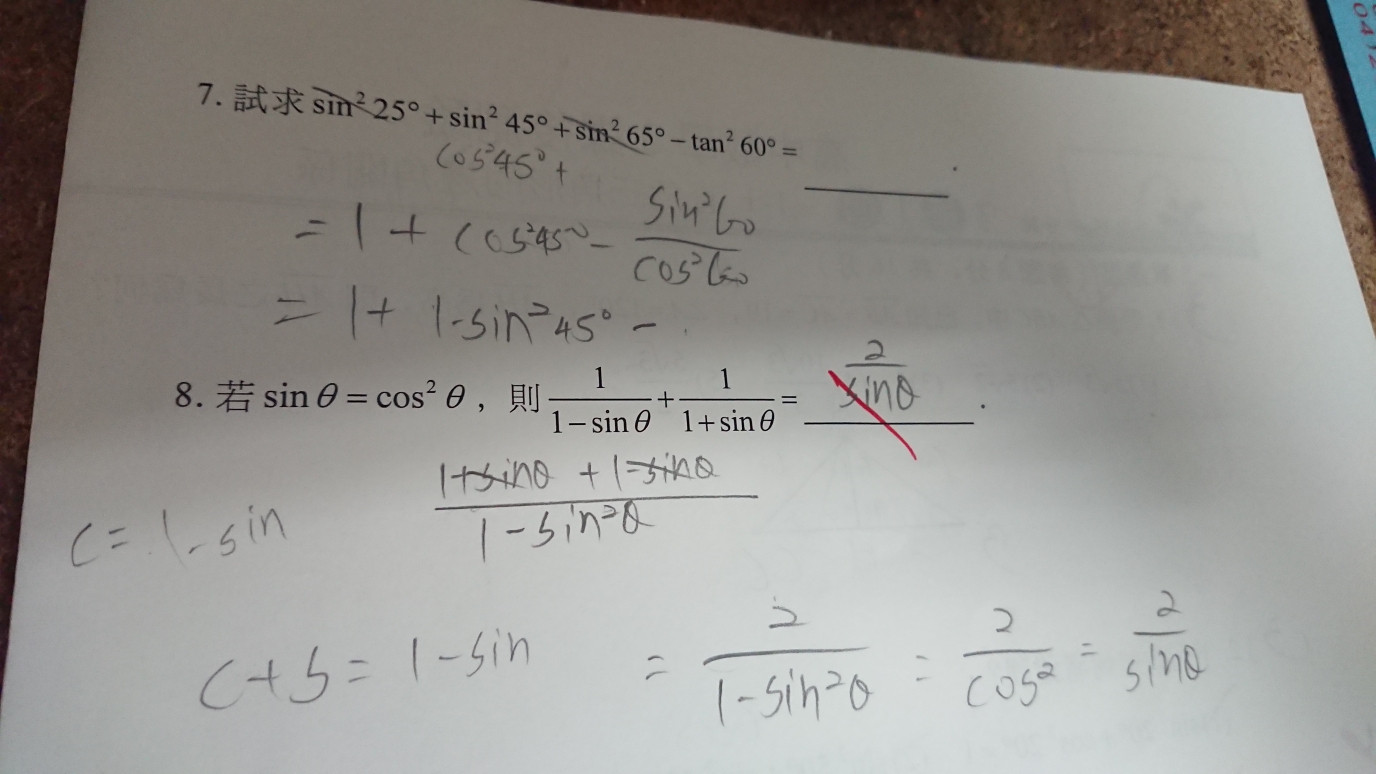 7. 試求 sin² 25° + sin² 45° + sin² 65° − tan² 60° = ______ .
cos²45° +
= 1 + cos²45° − sin²60 / cos²60
= 1 + 1 - sin²45° −
8. 若 sin θ = cos² θ , 則 1/(1 − sin θ) + 1/(1 + sin θ) = 2/sinθ .
(1+sinθ + 1-sinθ) / (1 - sin²θ)
C = 1 - sin
C + S = 1 - sin
= 2/(1 - sin²θ) = 2/cos² = 2/sinθ